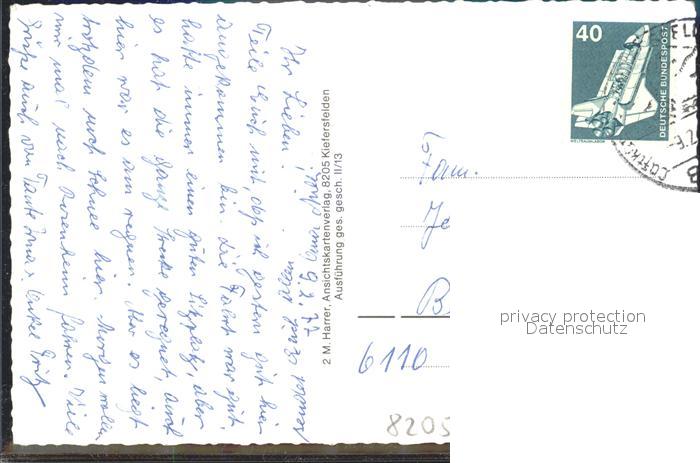 Ihr Lieben!
9.2.77
Teile Euch mit, daß ich gestern gut hier
angekommen bin. Die Fahrt war gut,
hatte immer einen guten Sitzplatz, aber
es hat die ganze Strecke geregnet, auch
hier war es am regnen. Aber es liegt
trotzdem noch Schnee hier. Morgen wollen
wir mal nach Rosenheim fahren. Viele
Grüße auch von Tante Irma u. Onkel Fritz
2 M. Harrer, Ansichtskartenverlag, 8205 Kiefersfelden
Ausführung ges. gesch. II/13
40
DEUTSCHE BUNDESPOST
WELTRAUMLABOR
Fam.
6110
8205
privacy protection
Datenschutz